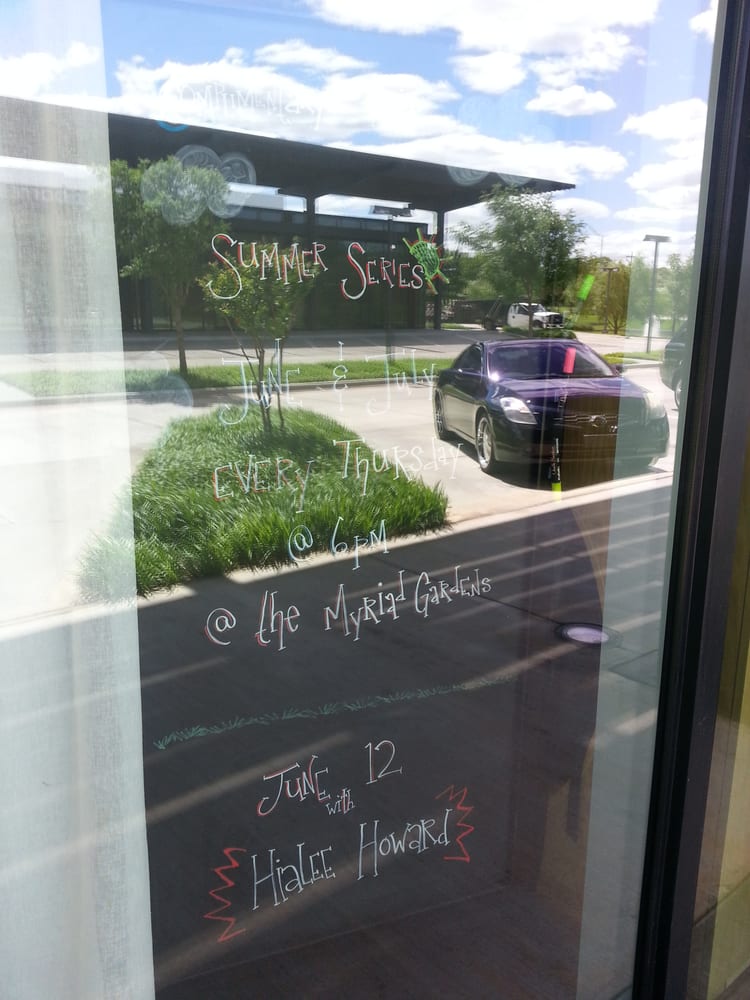 Complimentary
Summer Series
June & July
Every Thursday
@ 6pm
@ the Myriad Gardens
June 12
with
Hialee Howard